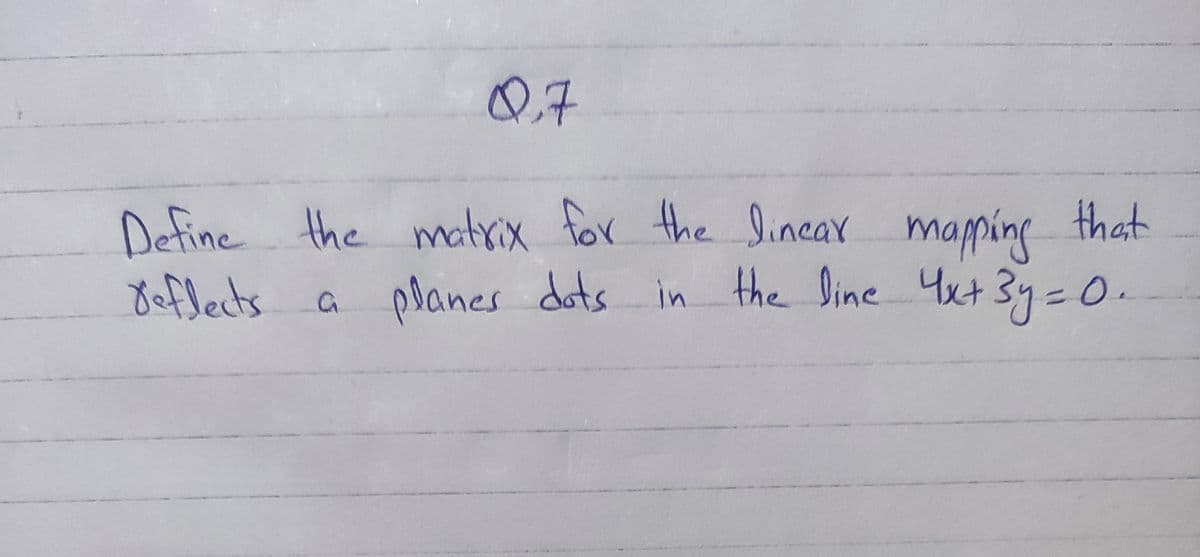 Q.7
Define the matrix for the linear mapping that
reflects a planes dots in the line 4x+3y=0.